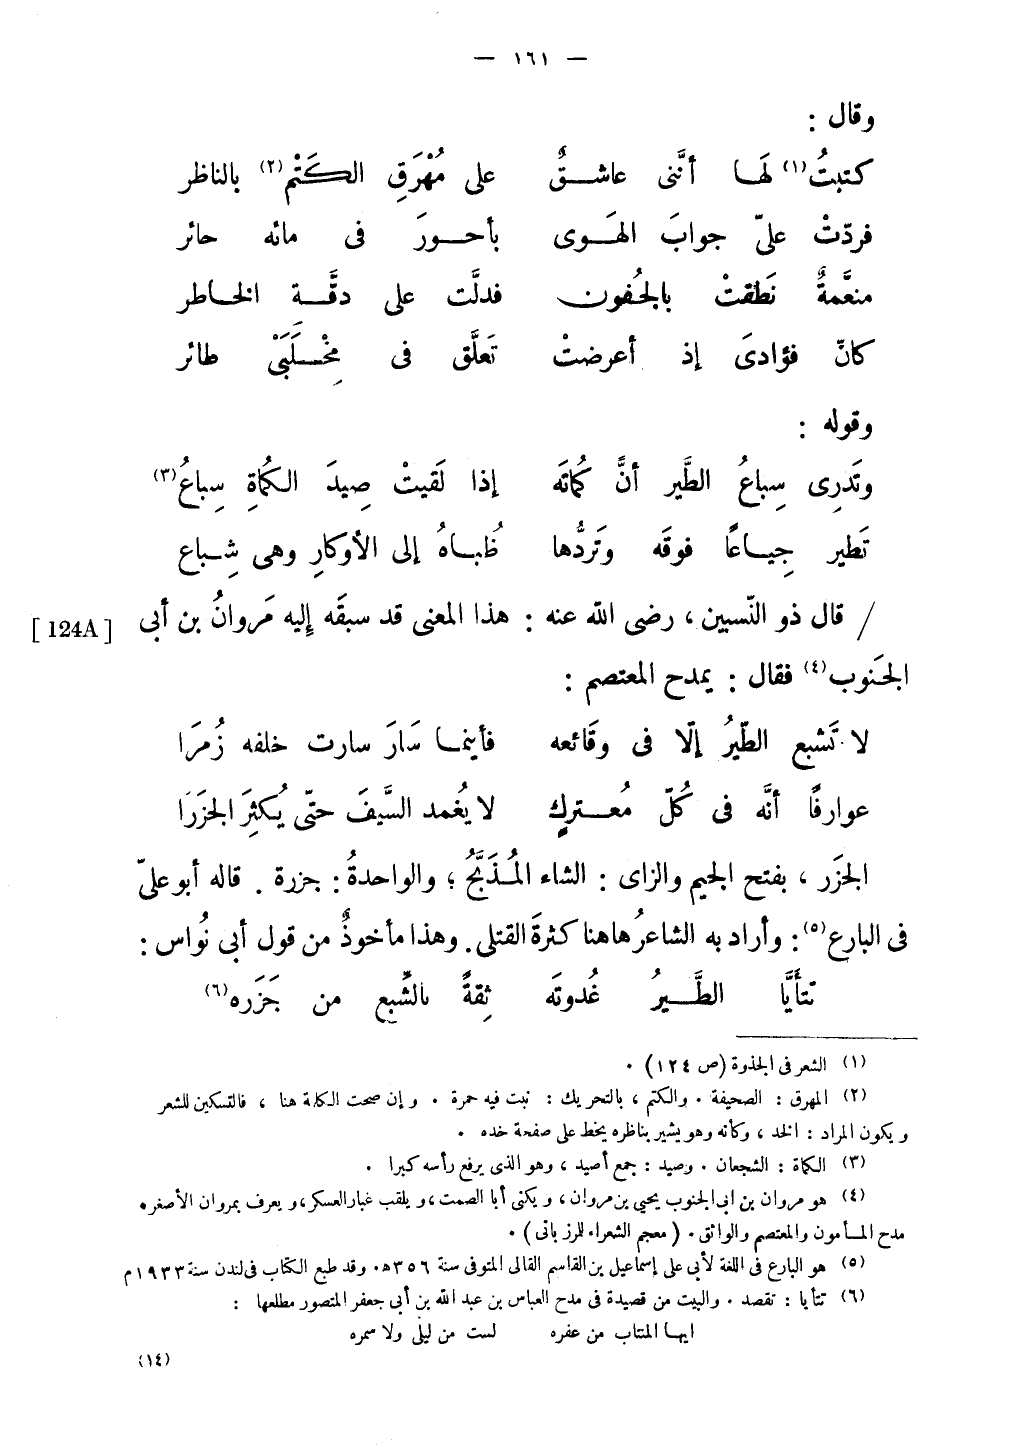 — ١٦١ —
وقال :
كتبتُ(١) لهَا أنَّنى عاشقٌ على مُهْرَقِ الكَتْمِ(٢) بالناظر
فردّتْ علىّ جوابَ الهَوى بأحورَ فى مائه حائر
منعَّمةٌ نَطَقتْ بالجُفون فدلَّت على دقَّة الخاطر
كانّ فؤادىَ إذ أعرضتْ تَعلَّق فى مِخْلَبَىْ طائر
وقوله :
وتَدرِى سِباعُ الطَّير أنَّ كُماتَه إذا لَقيتْ صِيدَ الكُماةِ سِباعُ(٣)
تَطير جِياعًا فوقَه وتَردُّها ظُباهُ إلى الأوكارِ وهى شِباع
/ قال ذو النّسبين ، رضى الله عنه : هذا المعنى قد سبقَه إليه مَروانُ بن أبى [124A]
الجَنوب(٤) فقال : يمدح المعتصم :
لا تَشبع الطّيرُ إلّا فى وقَائعه فأينما سَارَ سارت خلفه زُمرَا
عوارفًا أنَّه فى كُلّ مُعتركٍ لا يُغمد السَّيفَ حتّى يُكثِرَ الجَزَرَا
الجَزَر ، بفتح الجيم والزاى : الشاء المُذَبَّحُ ؛ والواحدةُ : جزرة . قاله أبو علىّ
فى البارع(٥) : وأراد به الشاعرُ هاهنا كثرةَ القتلى . وهذا مأخوذٌ من قول أبى نُواس :
تَتأيَّا الطَّيرُ غُدوتَه ثِقةً بالشِّبع من جَزَره(٦)
(١) الشعر فى الجذوة (ص ١٢٤) .
(٢) المهرق : الصحيفة . والكتم ، بالتحريك : نبت فيه حمرة . وإن صحت الكلمة هنا ، فالتسكين للشعر
ويكون المراد : الخد ، وكأنه وهو يشير بناظره يخط على صفحة خده .
(٣) الكماة : الشجعان . وصيد : جمع أصيد ، وهو الذى يرفع رأسه كبرا .
(٤) هو مروان بن ابى الجنوب يحيى بن مروان ، ويكنى أبا الصمت ، ويلقب غبار العسكر ، ويعرف بمروان الأصغر .
مدح المأمون والمعتصم والواثق . (معجم الشعراء للمرزبانى) .
(٥) هو البارع فى اللغة لأبى على إسماعيل بن القاسم القالى المتوفى سنة ٣٥٦ ه . وقد طبع الكتاب فى لندن سنة ١٩٣٣ م
(٦) تتأيا : تقصد . والبيت من قصيدة فى مدح العباس بن عبد الله بن أبى جعفر المتصور مطلعها :
ايها المنتاب من عفره لست من ليلى ولا سمره
(١٤)